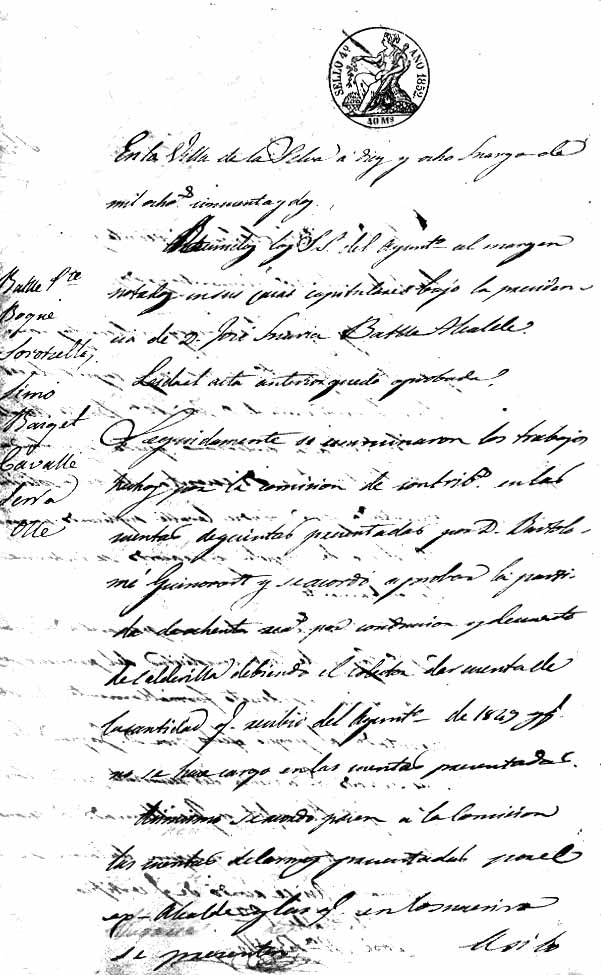 SELLO 4º AÑO 1852.
40 Ms
En la Villa de la Selva á diez y ocho marzo de
mil ochos cincuenta y dos.
Reunidos los S.S. del Ayuntº al margen
notados en sus casas capitulares bajo la presiden-
cia de D. José Batlle Alcalde.
Leida el acta anterior quedo aprobada.
Batlle Pte
Bogué
Simo
Barget
Cavallé
Serra
Olle
Seguidamente se examinaron los trabajos
hechos por la comision de contribs en las
cuentas de quintas presentadas por D. Bartolo-
mé y se acordó aprobar la parti-
da de ochenta reas por conduccion y descuento
de calderilla debiendo el colector dar cuenta de
la cantidad q. recibió del Ayuntº de 1849 y q.
no se hace cargo en las cuentas presentadas.
Asimismo se acordo pasen á la Comision
las cuentas presentadas por el
ex-Alcalde y las q. en lo sucesivo
se presenten